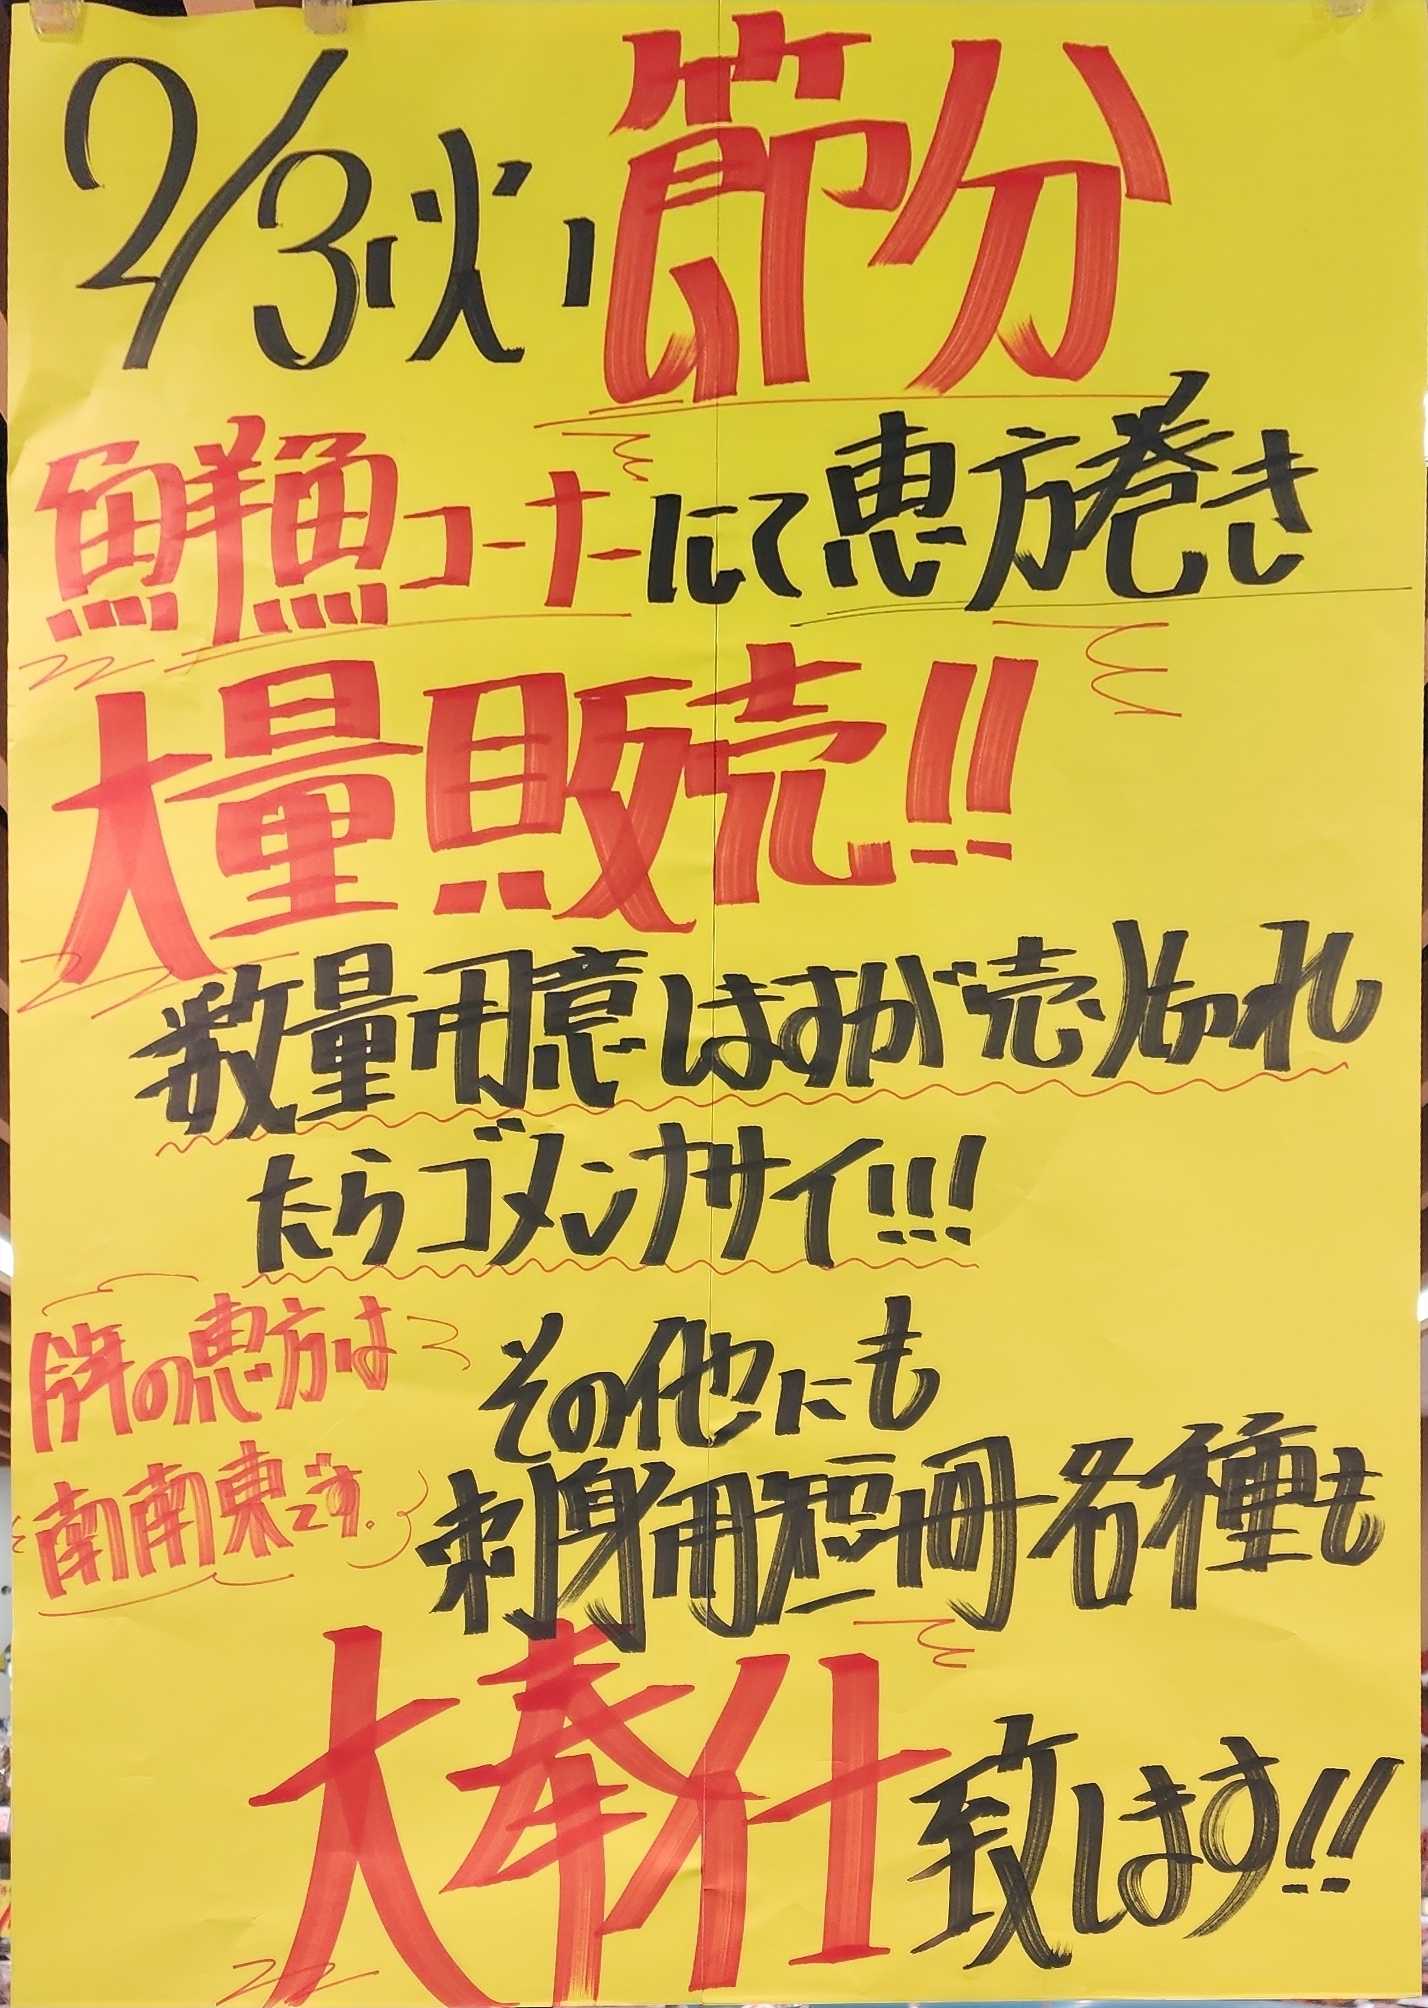 2/3(火)節分
鮮魚コーナーにて恵方巻き
大量販売!!
数量用意しますが売り切れ
たらゴメンナサイ!!!
今年の恵方は
南南東です。
その他にも
刺身用短冊各種も
大奉仕致します!!